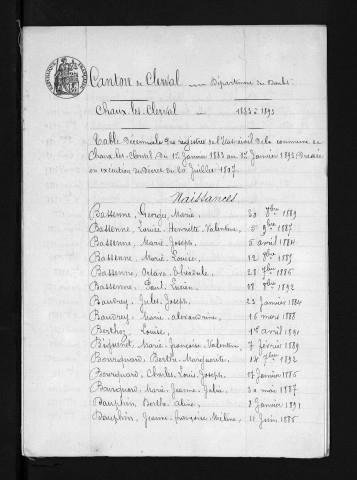 Canton de Clerval — Département du Doubs
Chaux-les-Clerval — 1883 à 1893
Table Décennale des registres de l'Etat-civil de la commune de
Chaux-les-Clerval du 1er Janvier 1883 au 1er Janvier 1893, Dressée
en exécution du Décret du 20 Juillet 1807.
Naissances
Bassenne, Georges, Marie, 1889
Bassenne, Louise, Henriette, Valentine, 5 9bre 1887
Bassenne, Marie, Joseph, 5 avril 1884
Bassenne, Marie, Louise, 12 1885
Bassenne, Octave, 28 1886
Bassenne, Paul, Lucien, 08 1892
Baudrey, Jules, Joseph, 22 Janvier 1884
Baudrey, Marie, alexandrine, 16 mars 1888
Berthoz, Louise, 1er avril 1891
Marie, Françoise, Valentine, 7 février 1889
Bourquard, Berthe, Marguerite, 14 1892
Bourquard, Charles, Louis, Joseph, Janvier 1886
Bourquard, Marie, Jeanne, Julie, 30 mai 1887
Dauphin, Berthe, Aline, 8 Janvier 1891
Dauphin, Jeanne, Françoise, 11 Juin 1886